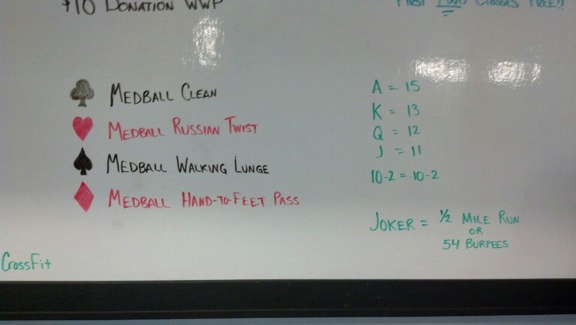 $10 DONATION WWP
FIRST TWO CLASSES FREE!!
♣ MEDBALL CLEAN
♥ MEDBALL RUSSIAN TWIST
♠ MEDBALL WALKING LUNGE
♦ MEDBALL HAND-TO-FEET PASS
A = 15
K = 13
Q = 12
J = 11
10-2 = 10-2
JOKER = 1/2 MILE RUN
OR
54 BURPEES
CrossFit